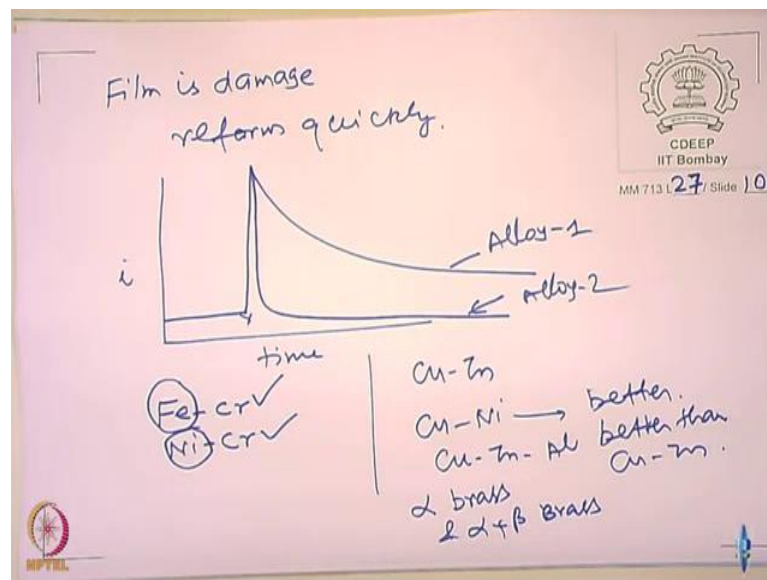 Film is damage
reforms quickly.
CDEEP
IIT Bombay
MM 713 L 27 / Slide 10
i
Alloy-1
Alloy-2
time
Fe-Cr ✓
Ni-Cr ✓
Cu-Zn
Cu-Ni → better.
Cu-Zn-Al better than
Cu-Zn.
α brass
& α+β Brass
NPTEL